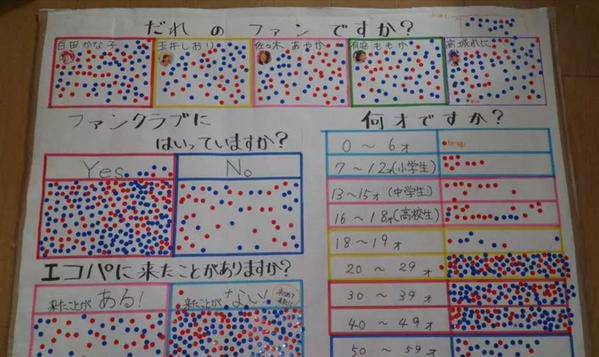 だれ の ファン ですか?
百田かな子
玉井しおり
佐々木 あやか
有安ももか
高城れに
ファンクラブに
はいっていますか?
Yes
No
エコパに来たことがありますか?
来たことが ある!
来たことが ない!
何才ですか?
0 〜 6才
7 〜 12才(小学生)
13〜15才(中学生)
16 〜 18才(高校生)
18 〜 19才
20 〜 29才
30 〜 39才
40 〜 49才
50 〜 59才